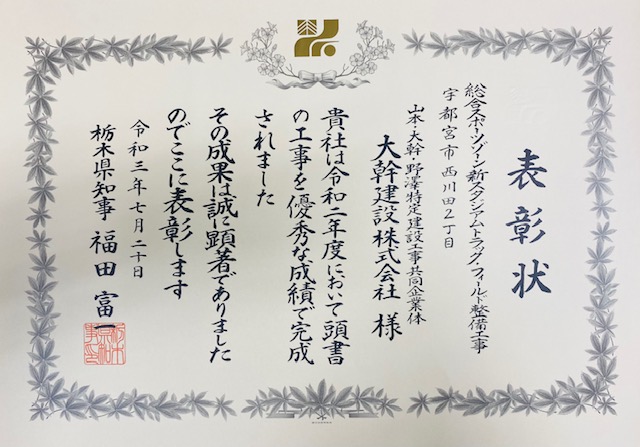 表彰状
総合スポーツゾーン新スタジアムトラック・フィールド整備工事
宇都宮市西川田2丁目
山本・大幹・野澤特定建設工事共同企業体
大幹建設株式会社 様
貴社は令和二年度において頭書
の工事を優秀な成績で完成
されました
その成果は誠に顕著でありました
のでここに表彰します
令和三年七月二十日
栃木県知事 福田富一
栃木
県知
事印